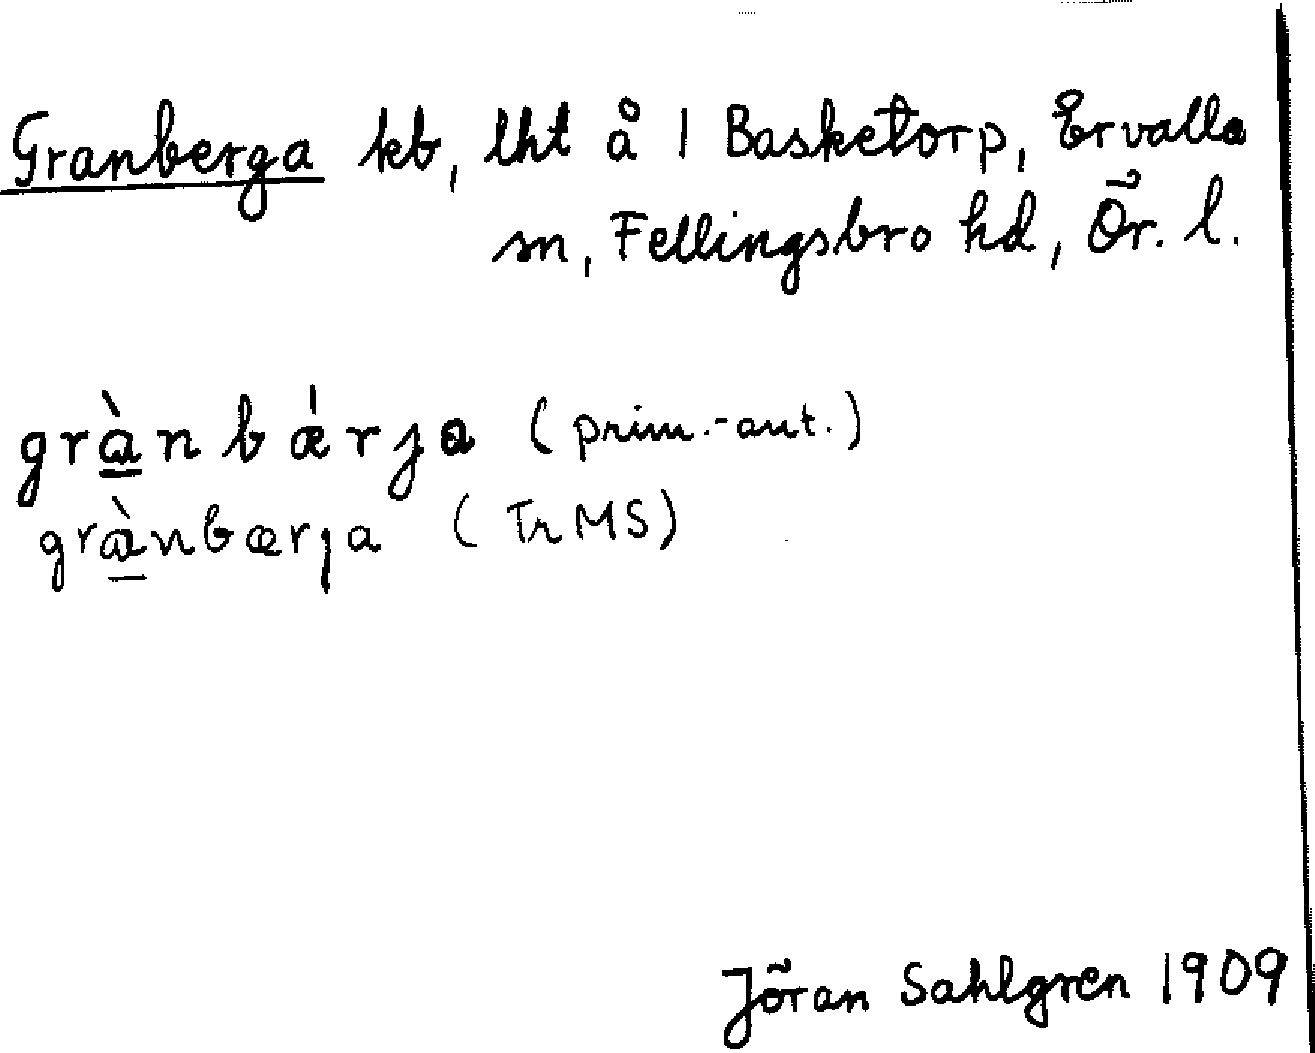 Granberga kb, lht å 1 Basketorp, Ervalla
sn, Fellingsbro hd, Ör. l.
grànbǽrja (prim.-aut.)
grànbærja (TrMS)
Jöran Sahlgren 1909